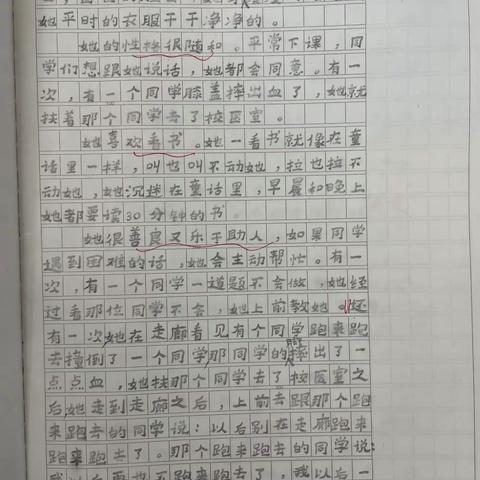 她平时的衣服干干净净的。
她的性格很随和。平常下课，同
学们想跟她说话，她都会同意。有一
次，有一个同学膝盖摔出血了，她就
扶着那个同学去了校医室。
她喜欢看书。她一看书就像在童
话里一样，叫也叫不动她，拉也拉不
动她，她沉迷在童话里，早晨和晚上
她都要读30分钟的书。
她很善良又乐于助人，如果同学
遇到困难的话，她会主动帮忙。有一
次，有一个同学一道题不会做，她经
过看那位同学不会，她上前教她。还
有一次她在走廊看见有个同学跑来跑
去撞倒了一个同学那同学的脚摔出了一
点点血，她扶那个同学去了校医室之
后她走到走廊之后，上前去跟那个跑
来跑去的同学说：以后别在走廊跑来
跑来跑去了。那个跑来跑去的同学说：
我以后再也不跑来跑去了，我以后一